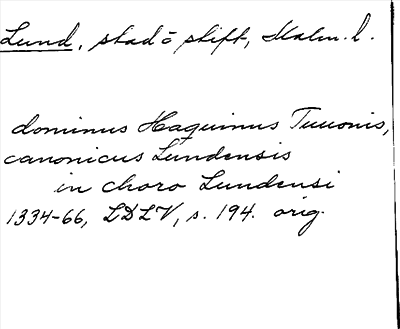 Lund, stad o stift, Malm. l.
dominus Haquinus Tuuonis,
canonicus Lundensis
in choro Lundensi
1334-66, LDLV, s. 194. orig.